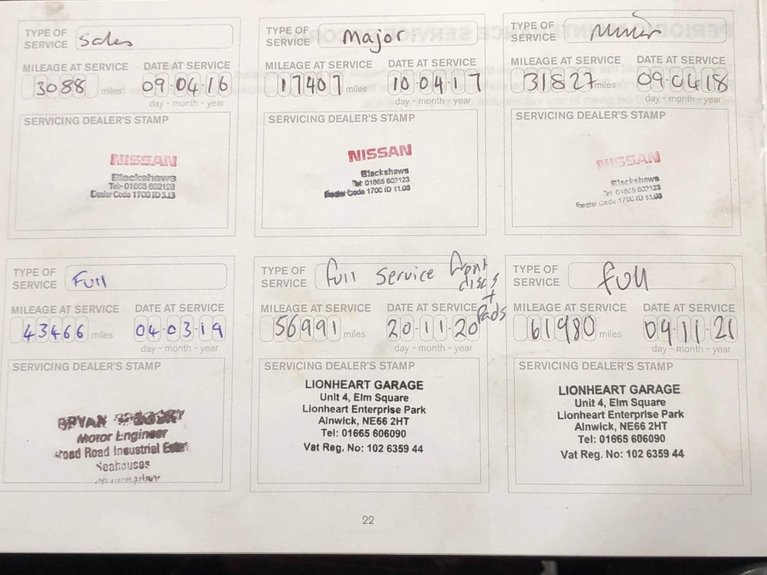 TYPE OF SERVICE Sales
MILEAGE AT SERVICE DATE AT SERVICE
3088 miles 09-04-16
day - month - year
SERVICING DEALER'S STAMP
NISSAN
Blackshaws
Tel: 01665 602123
Dealer Code 1700 ID 3.13
TYPE OF SERVICE Major
MILEAGE AT SERVICE DATE AT SERVICE
17407 miles 10-04-17
day - month - year
SERVICING DEALER'S STAMP
NISSAN
Blackshaws
Tel: 01665 602123
Dealer Code 1700 ID 11.06
TYPE OF SERVICE Minor
MILEAGE AT SERVICE DATE AT SERVICE
31827 miles 09-04-18
day - month - year
SERVICING DEALER'S STAMP
NISSAN
Blackshaws
Tel: 01665 602123
Dealer Code 1700 ID 11.06
TYPE OF SERVICE Full
MILEAGE AT SERVICE DATE AT SERVICE
43466 miles 04-03-19
day - month - year
SERVICING DEALER'S STAMP
BRYAN
Motor Engineer
Road Industrial
Seahouses
TYPE OF SERVICE full service front discs + Pads
MILEAGE AT SERVICE DATE AT SERVICE
56991 miles 20-11-20
day - month - year
SERVICING DEALER'S STAMP
LIONHEART GARAGE
Unit 4, Elm Square
Lionheart Enterprise Park
Alnwick, NE66 2HT
Tel: 01665 606090
Vat Reg. No: 102 6359 44
TYPE OF SERVICE full
MILEAGE AT SERVICE DATE AT SERVICE
61980 miles 09-11-21
day - month - year
SERVICING DEALER'S STAMP
LIONHEART GARAGE
Unit 4, Elm Square
Lionheart Enterprise Park
Alnwick, NE66 2HT
Tel: 01665 606090
Vat Reg. No: 102 6359 44
22